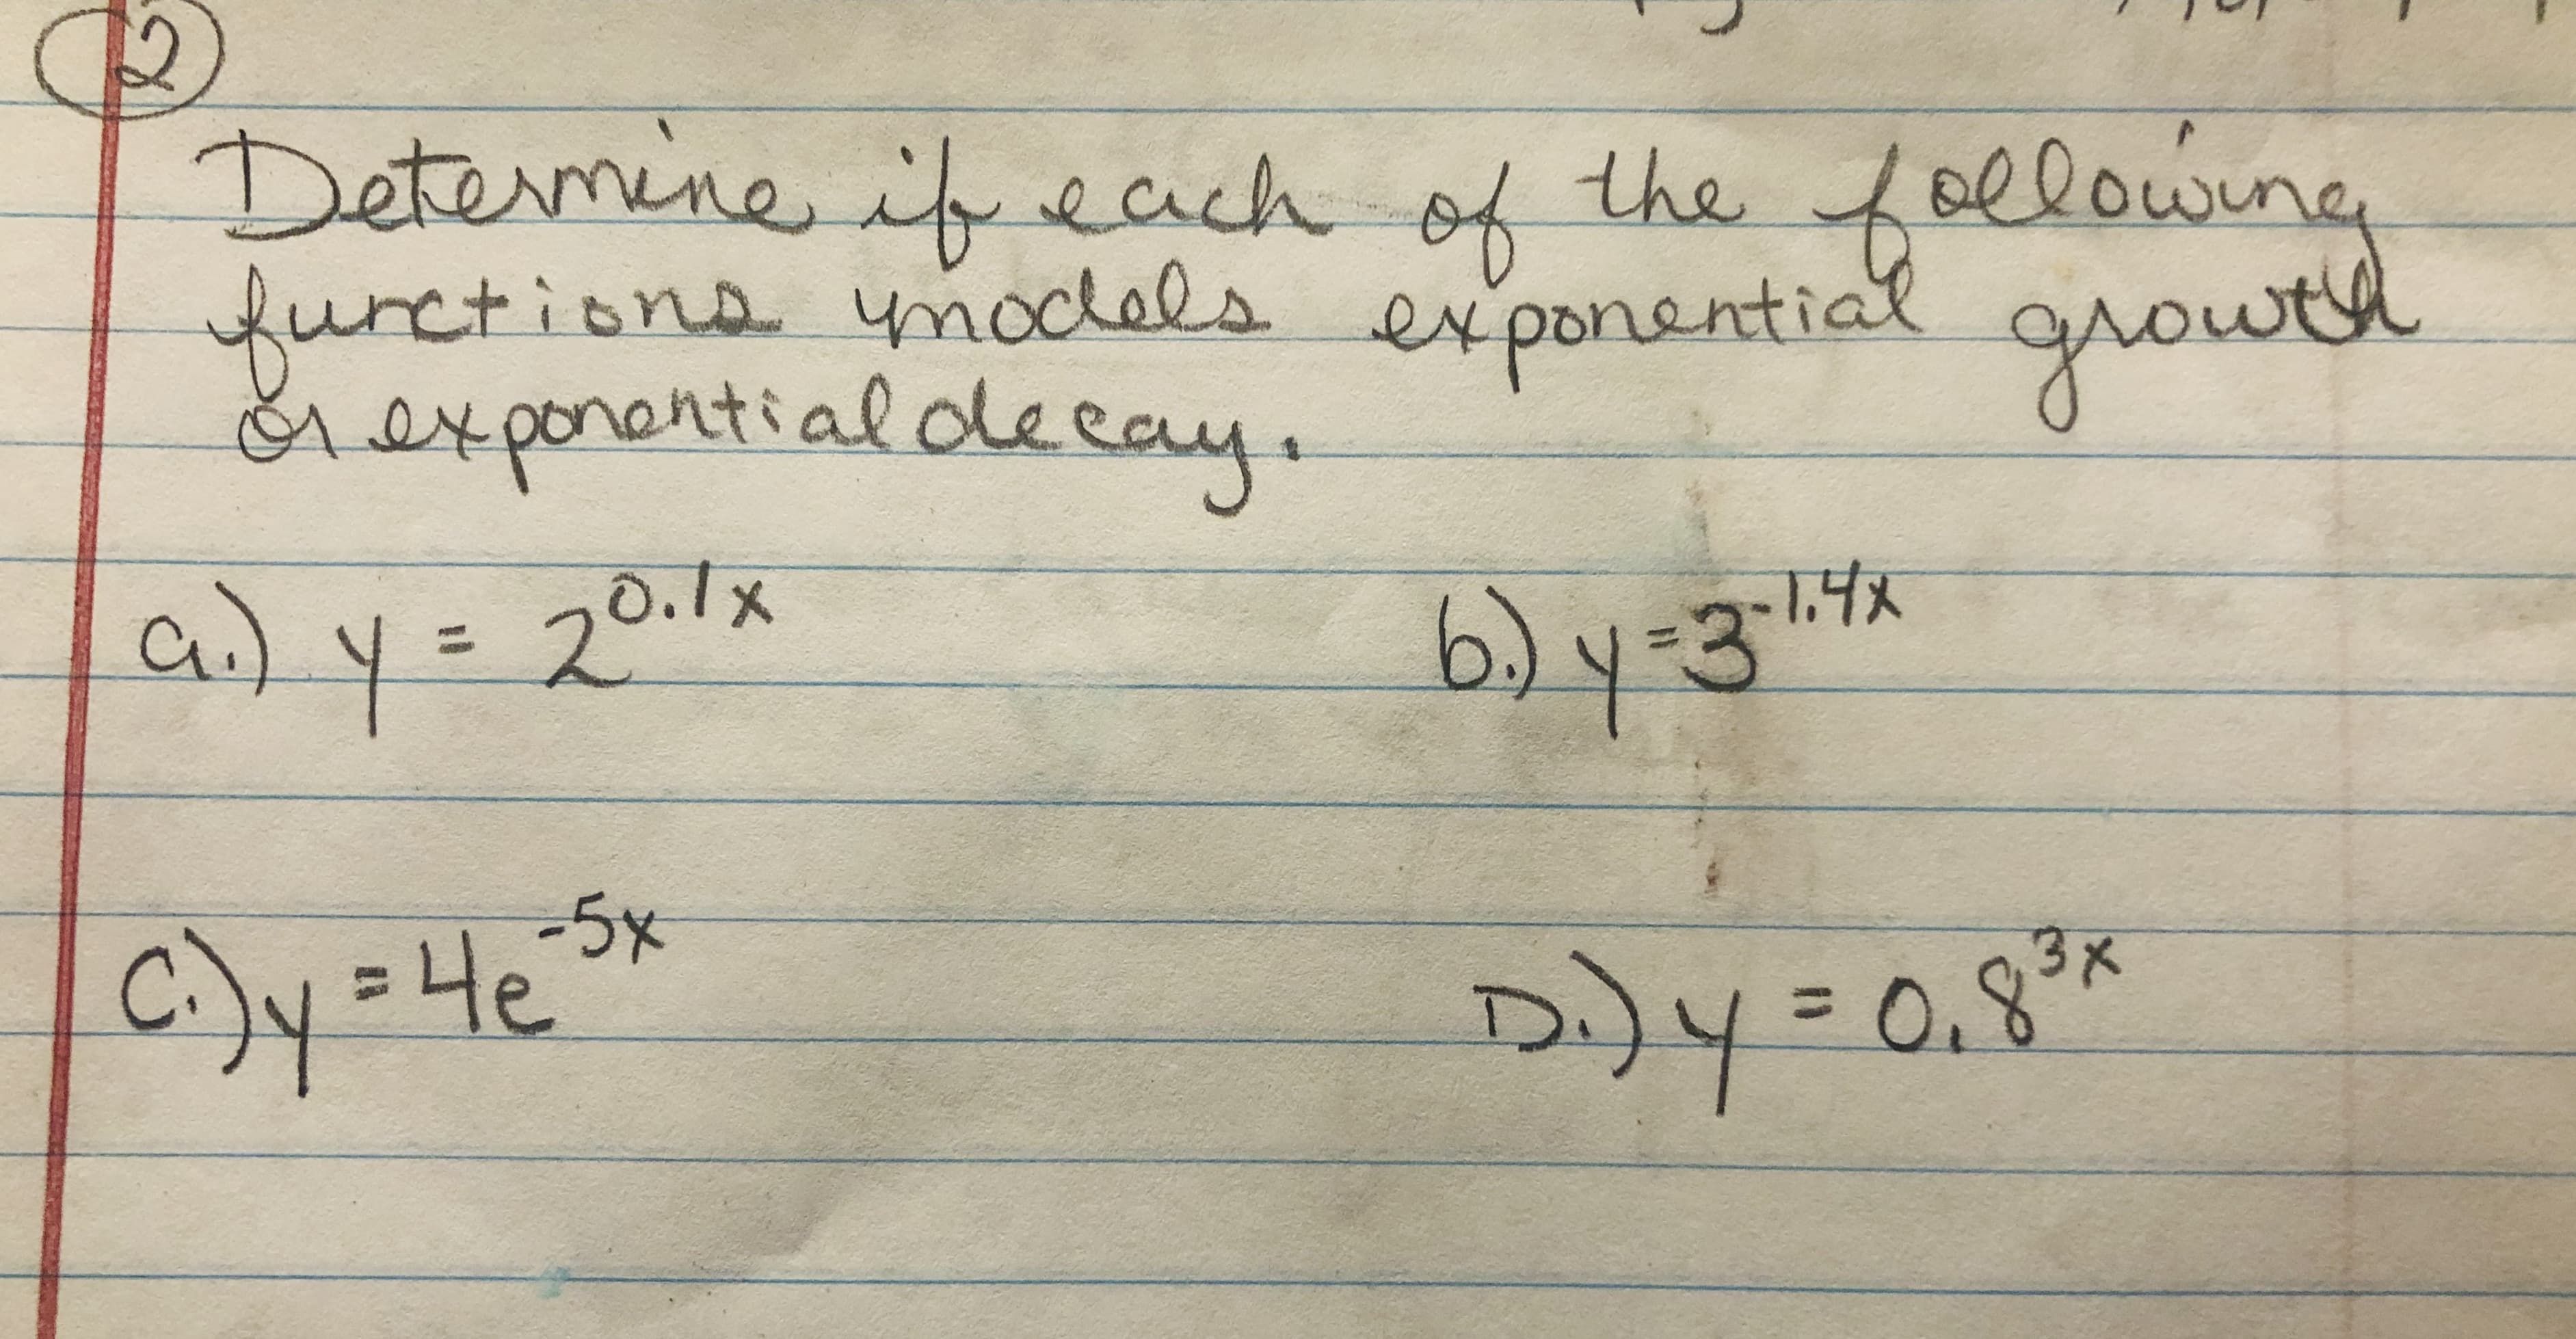 2
Determine if each of the following
functions models exponential growth
or exponential decay.
a.) y = 2^0.1x b.) y=3^-1.4x
C.) y = 4e^-5x D.) y = 0.8^3x